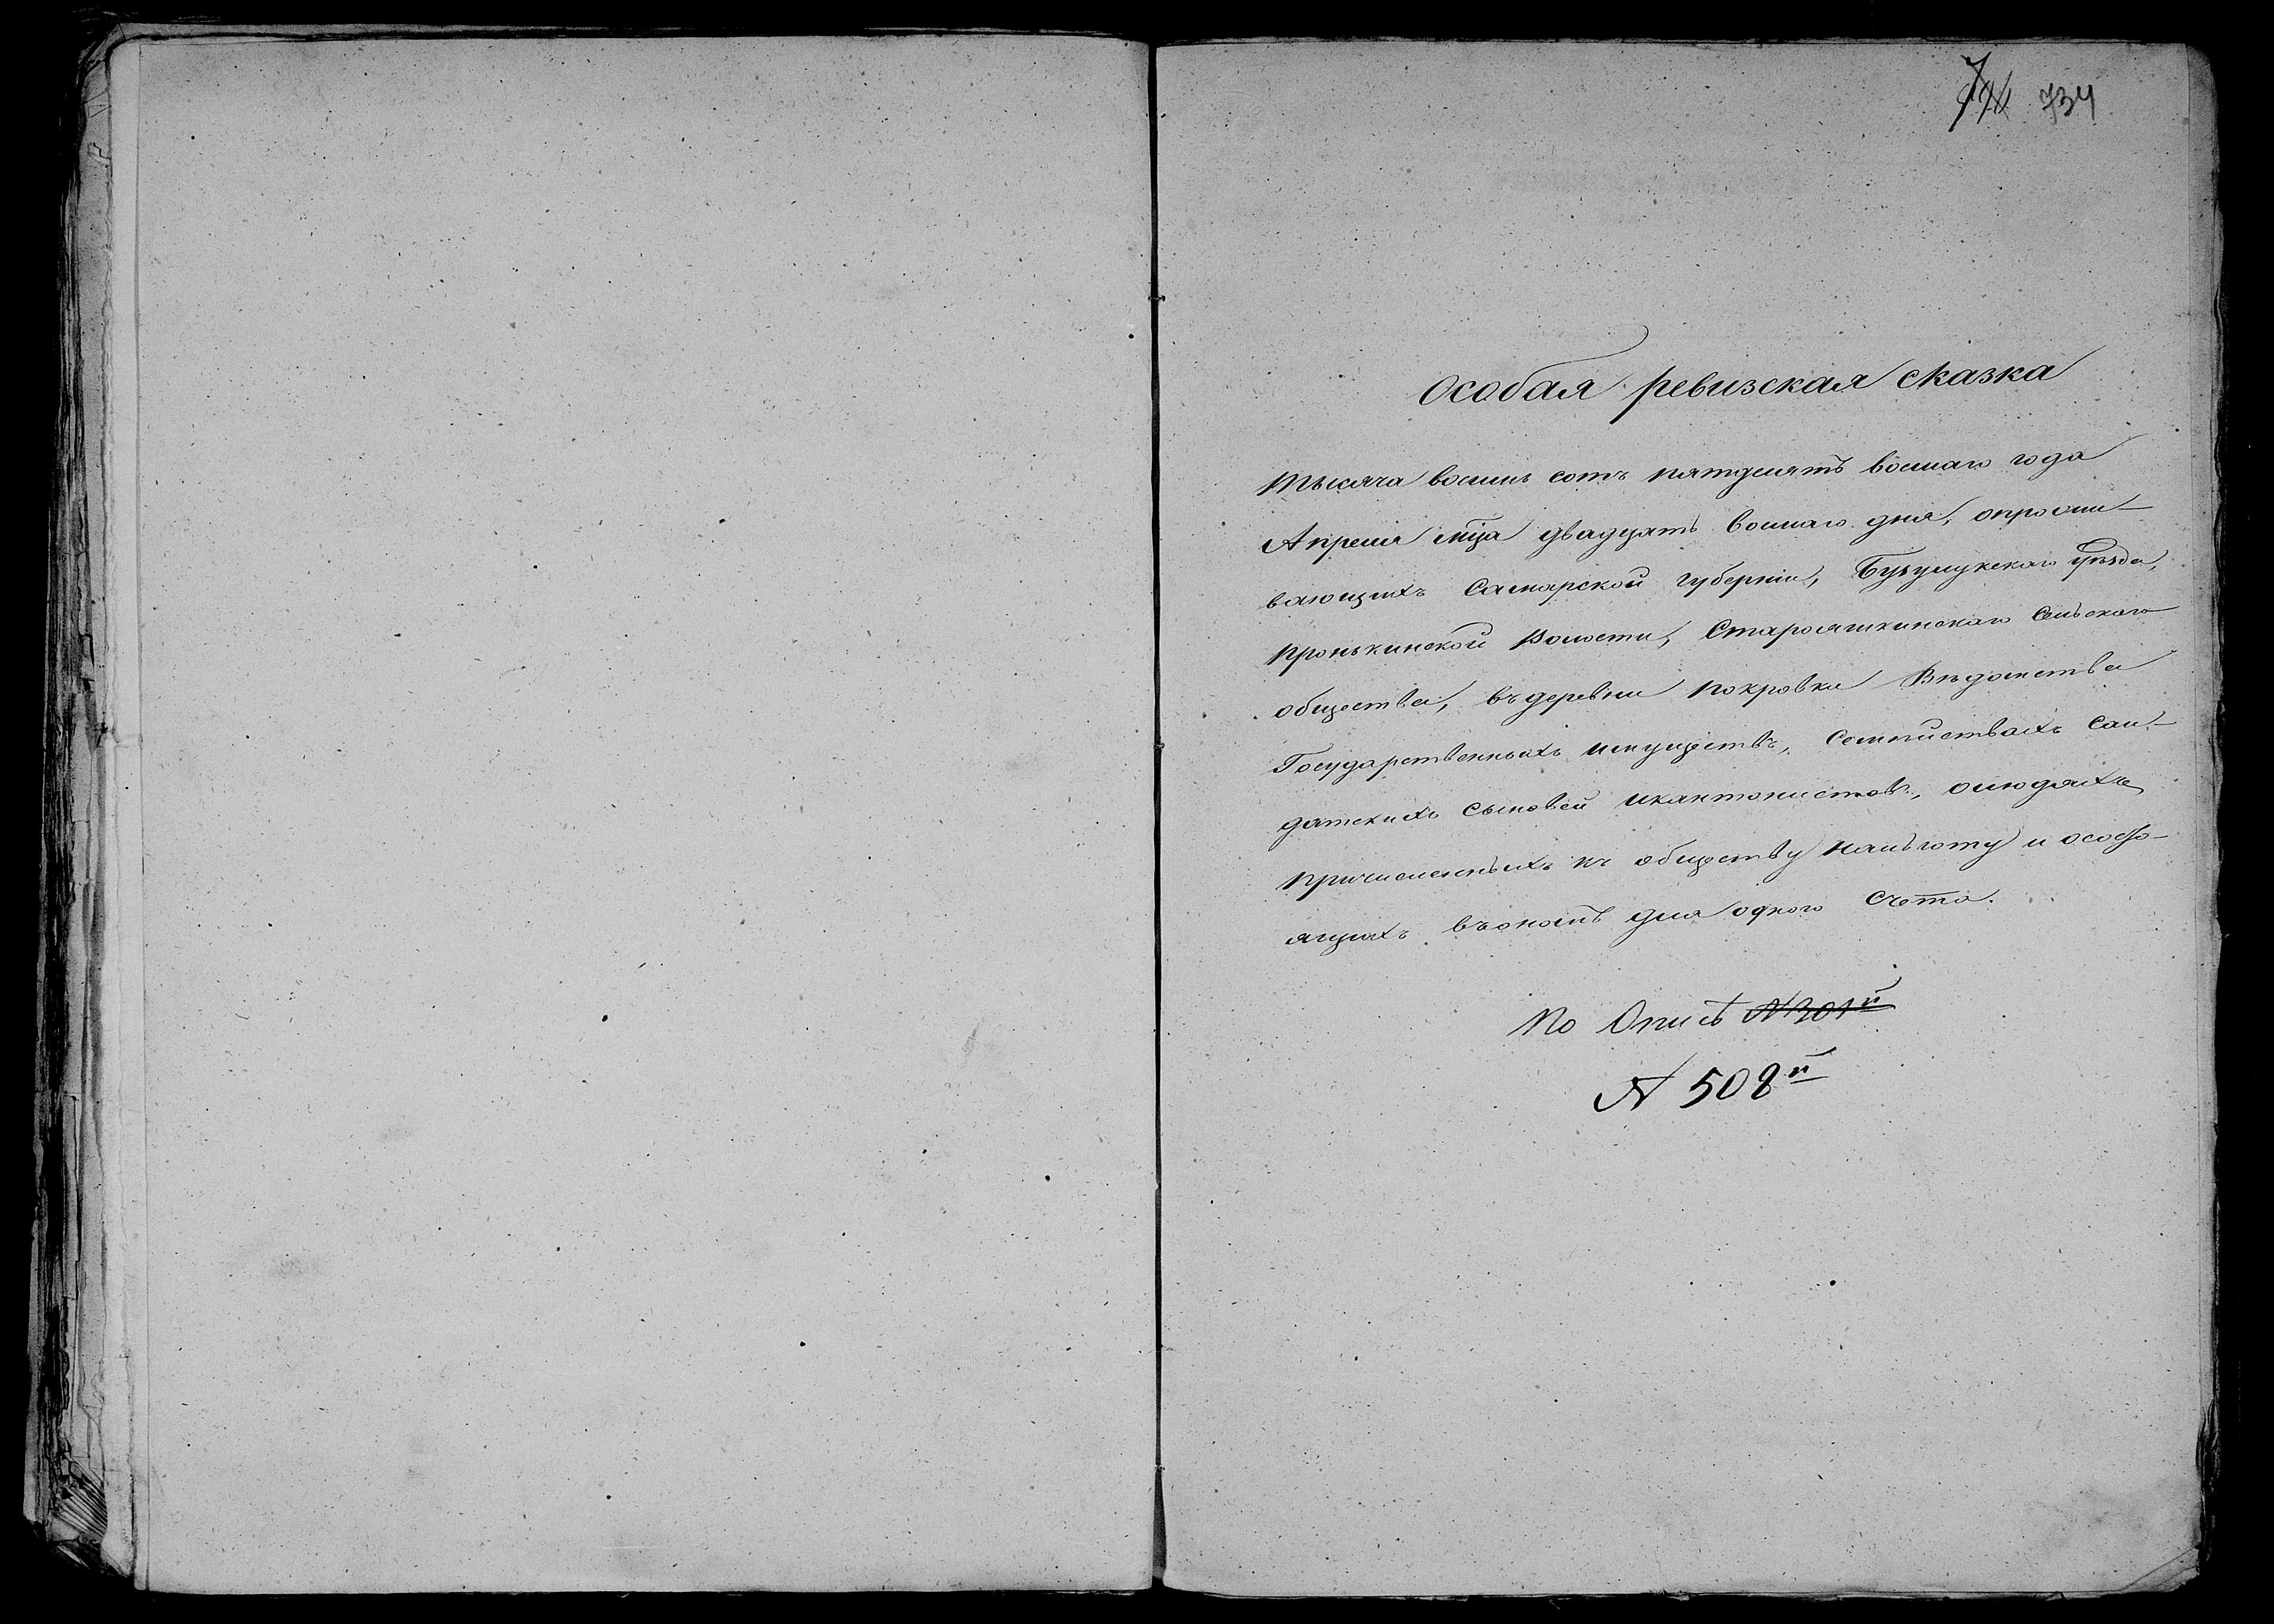 734
Особая ревизская сказка
Тысяча восемь сотъ пятдесятъ восмаго года
Апреля мца двадцать восмаго дня, опрожи-
вающихъ Самарской губерніи, Бузулукскаго уѣзда,
Пронькинской волости, Старояшкинскаго Сельскаго
общества, въ деревни Покровки Вѣдомства
Государственныхъ имуществъ, Семѣйствахъ сол-
датскихъ сыновей икантонистовъ, олюдяхъ
причисленныхъ къ обществу нальготу и особо-
ящихъ въономъ для одного Счета.
По Описѣ №301й
№ 508й